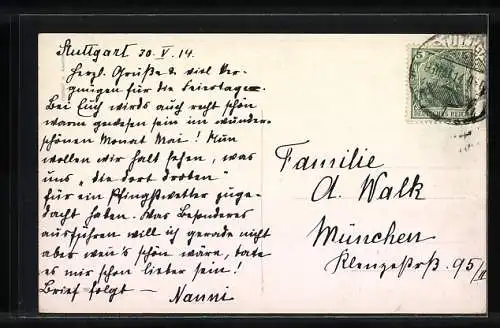 Stuttgart 30. V. 14.
Herzl. Grüße & viel Ver-
gnügen für die Feiertage.
Bei Euch wirds auch recht schön
warm gewesen sein im wunder-
schönen Monat Mai! Nun
wollen wir halt sehen, was
uns "die dort droben"
für ein Pfingstwetter zuge-
dacht haben. Was Besonderes
ausführen will ich gerade nicht
aber wen's schön wäre, täte
es mir schon lieber sein!
Brief folgt –
Nanni
Familie
A. Walk
München
Klenzestrß. 95/II
5
DEUTSCHES REICH